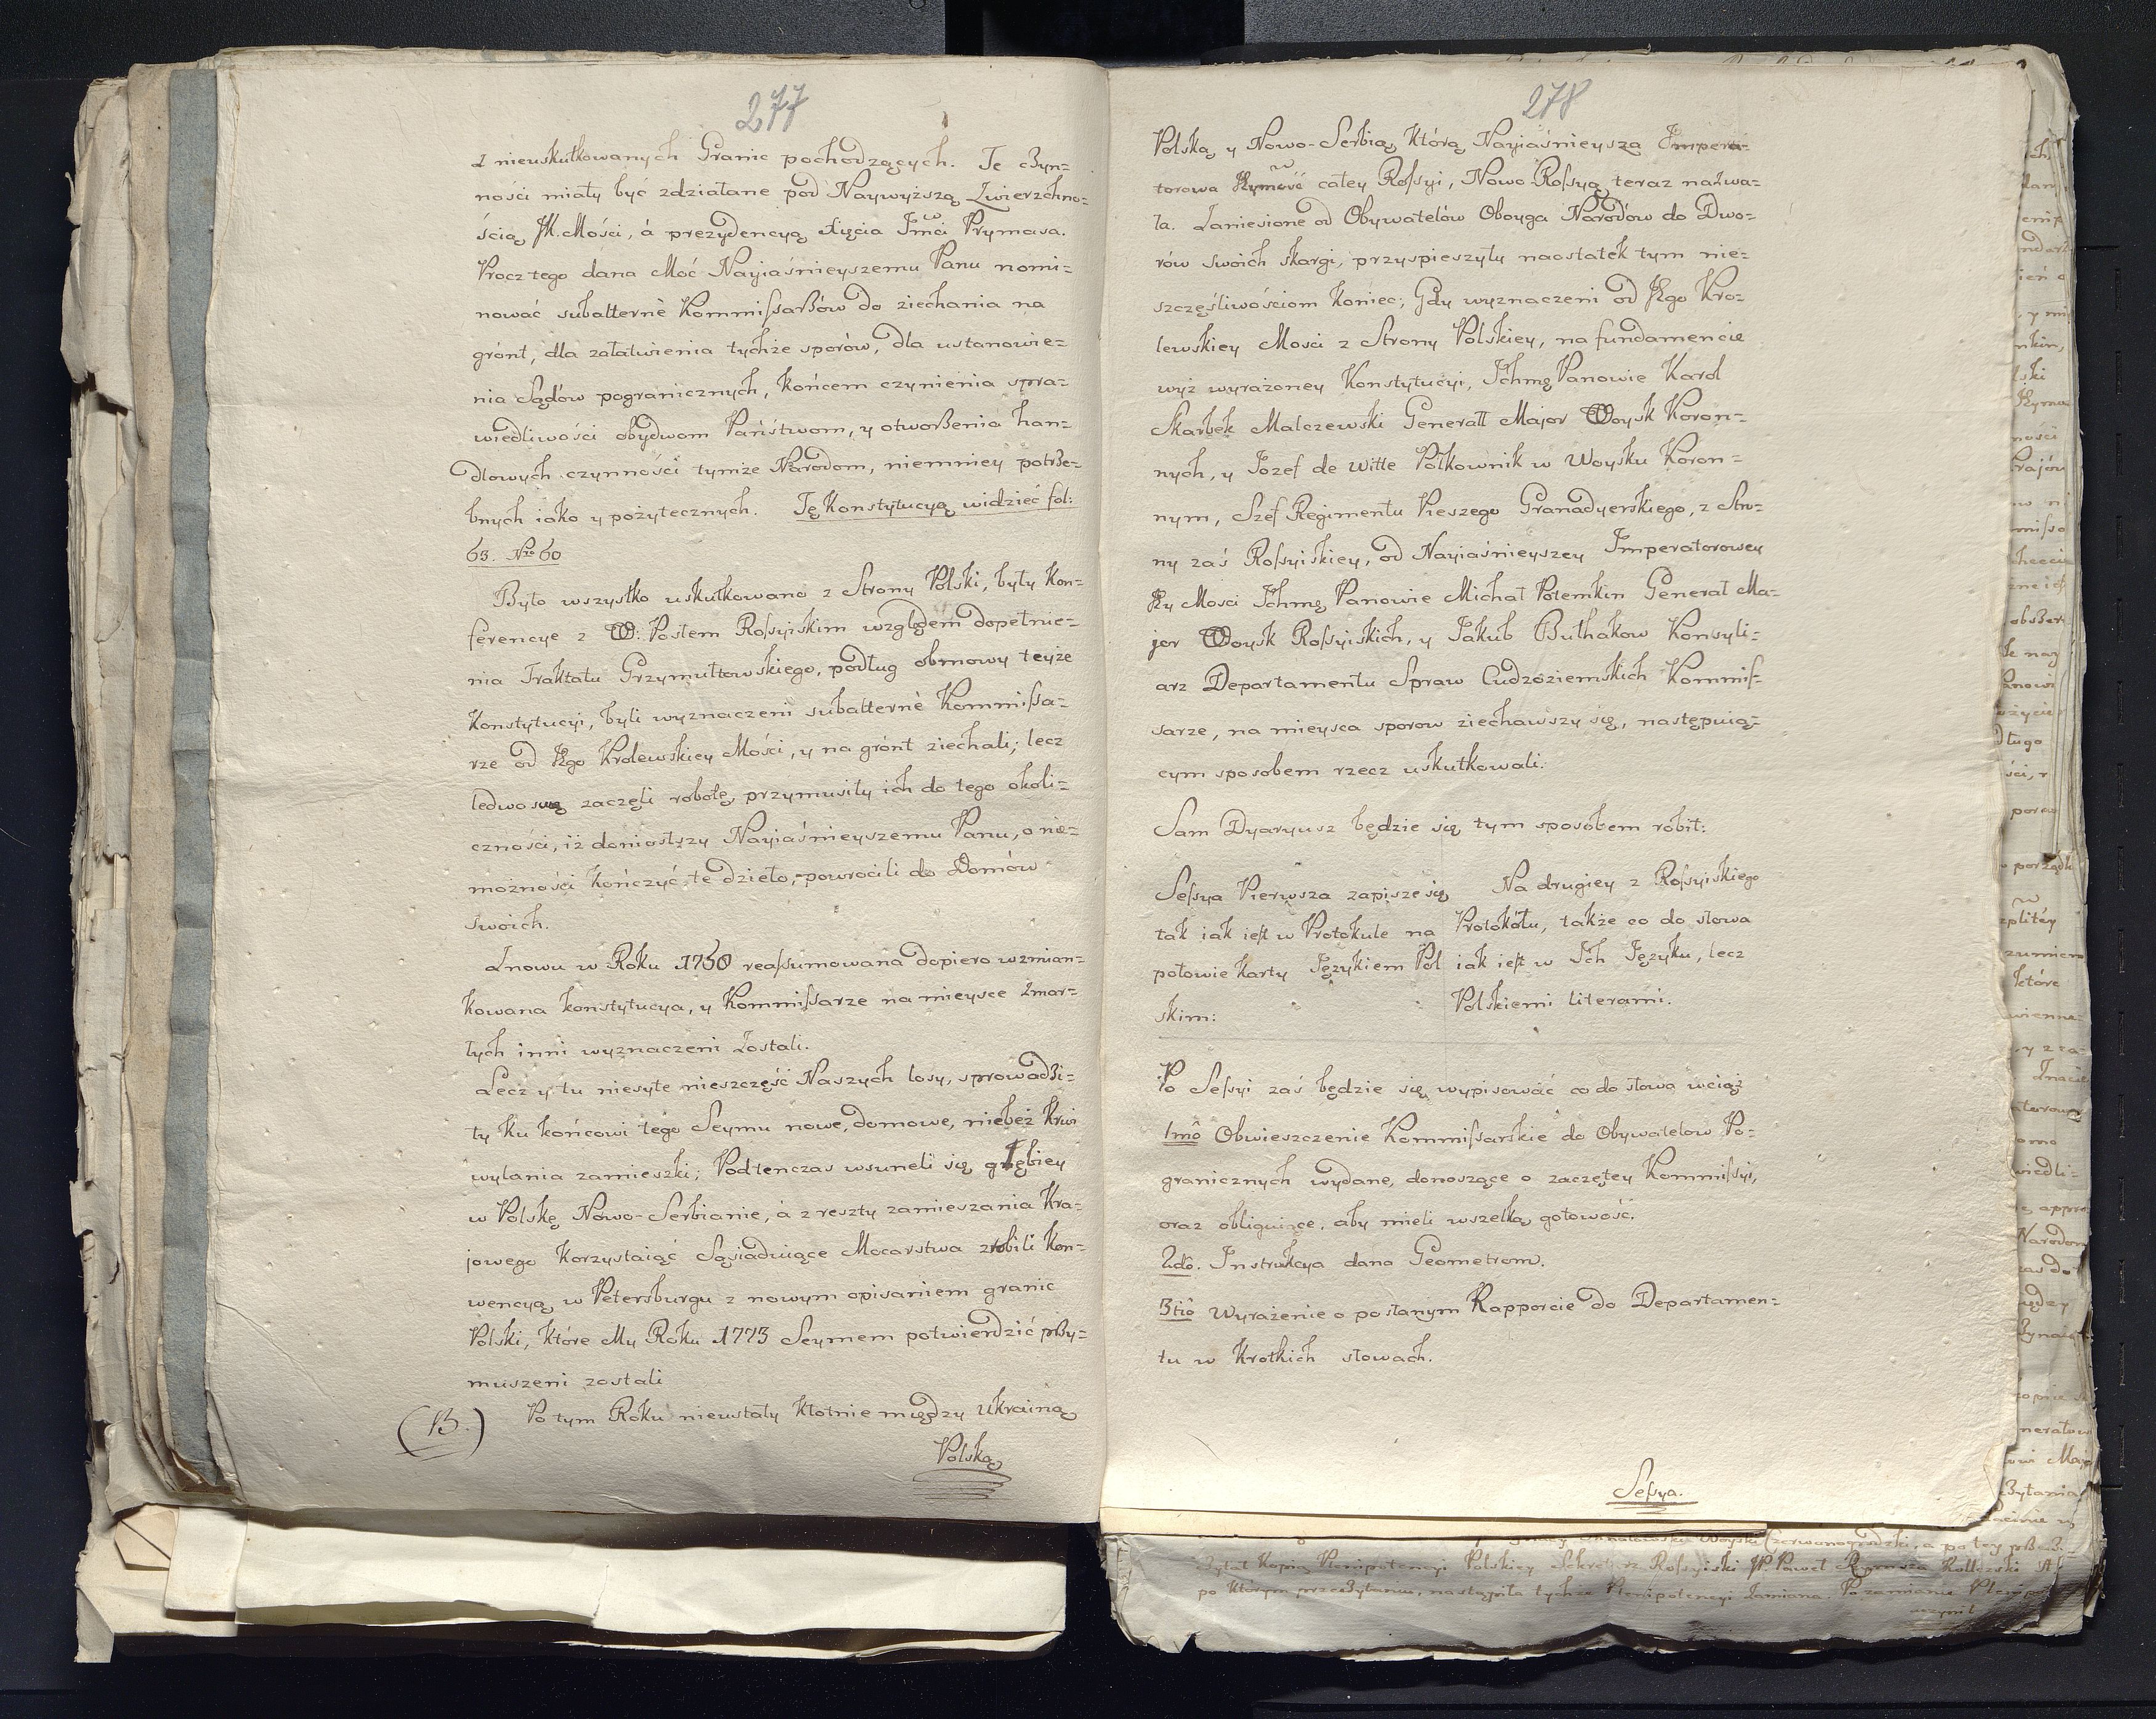 277
z nieuskutkowanych Granic pochodzących. Te czyn=
ności miały być zdziałane pod Naywyższą Zwierzchno=
ścią JK. Mości, á prezydencyą Xięcia Jmći Prymasa.
Procz tego dana Moć Nayiaśnieyszemu Panu nomi=
nować subalternè Kommiſsarzów do ziechania na
grónt, dla załatwienia tychże sporów, dla ustanowie=
nia Sądów pogranicznych, końcem czynienia spra=
wiedliwości obydwom Państwom, y otworzenia han=
dlowych czynności tymże Narodom, niemniey potrze=
bnych iako y pożytecznych. Tę Konstytucyą widzieć fol:
63. Nro 60
Było wszystko uskutkowano z Strony Polski, były Kon=
ferencye z W: Posłem Roſsyiskim względem dopełnie=
nia Traktatu Grzymułtowskiego, podług obmowy teyże
Konstytucyi, byli wyznaczeni subalternè Kommiſsa=
rze od JKgo Krolewskiey Mości, y na grónt ziechali; lecz
ledwo swą zaczęli robotę, przymusiły ich do tego okoli=
czności, iż doniosłszy Nayiaśnieyszemu Panu, o nie=
możności kończyć te dzieło, powrocili do Domów
swoich.
Znowu w Roku 1750 reaſsumowana dopiero wzmian=
kowana konstytucya, y Kommiſsarze na mieysce zmar=
łych inni wyznaczeni zostali.
Lecz y tu niesyte nieszczęść Naszych losy, sprowadzi=
ły ku końcowi tego Seymu nowe, domowe, niebez Krwi
wylania zamieszki; Podtenczas wsuneli się głębiey
w Polskę Nowo-Serbianie, á z reszty zamieszania Kra=
jowego korzystaiąć Sąsiaduiące Mocarstwa zrobili Kon=
wencyą w Petersburgu z nowym opisaniem granic
Polski, które My Roku 1773 Seymem potwierdzić przy=
muszeni zostali
(B.) Po tym Roku nieustały Kłotnie między Ukrainą
Polską
278
Polską y Nowo-Serbią, którą Nayiaśnieysza Impera=
torowa Jeymość całey Roſsyi, Nowo-Roſsyą teraz nazwa=
ła. Zaniesione od Obywatelów Oboyga Narodów do Dwo=
rów swoich skargi, przyspieszyły naostatek tym nie=
szczęśliwościom koniec; Gdy wyznaczeni od JKgo Kro=
lewskiey Mosci z Strony Polskiey, na fundamencie
wyż wyrażoney Konstytucyi, Ichmę Panowie Karol
Skarbek Malczewski Generall Major Woysk Koron=
nych, y Jozef de Witte Pólkownik w Woysku Koron=
nym, Szef Regimentu Pieszego Granadyerskiego, z Stro=
ny zaś Roſsyiskiey, od Nayiaśnieyszey Imperatorowey
Jey Mosci Ichmę Panowie Michał Potemkin Generał Ma=
jor Woysk Roſsyiskich, y Jakub Bułhakow Konsyli=
arz Departamentu Spraw Cudzoziemskich Kommiſ=
sarze, na mieysca sporow ziechawszy się, następuią=
cym sposobem rzecz uskutkowali.
Sam Dyaryusz będzie się tym sposobem robił:
Seſsya Pierwsza zapisze się
tak iak iest w Protokule na
połowie karty Językiem Pol
skim:
Na drugiey z Roſsyiskiego
Protokółu, także co do słowa
iak iest w Ich Języku, lecz
Polskiemi literami.
Po Seſsyi zaś będzie się wypisować co do słowa wciąż
1mo Obwieszczenie Kommiſsarskie do Obywatelow Po=
granicznych wydane, donoszące o zaczętey Kommiſsyi,
oraz obliguiące, aby mieli wszelką gotowość.
2do. Instrukcya dana Geometrom.
3tio Wyrażenie o posłanym Rapporcie do Departamen=
tu w krotkich słowach.
Seſsya.